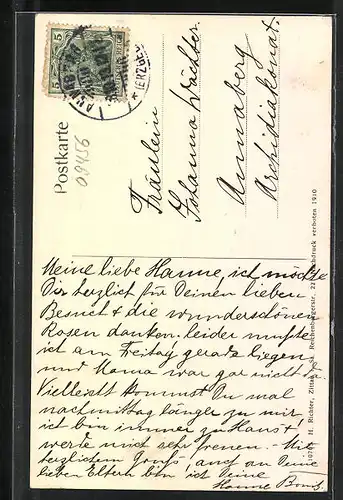 Postkarte
09456
5
5
(ERZGEB.
Fräulein
Johanna Wächter
Annaberg
Archidiakonat.
H. Richter, Zittau i. Sa. Reichenbergerstr. Nachdruck verboten 1910
Meine liebe Hanne, ich möchte
Dir herzlich für Deinen lieben
Besuch & die wunderschönen
Rosen danken. leider mußte
ich am Freitag gerade liegen
und Mama war gar nicht da.
Vielleicht kommst Du mal
nachmittag länger zu mir,
ich bin immer zu Haus &
werde mich sehr freuen. - Mit
herzlichem Gruß, auch an Deine
lieben Eltern bin ich Deine
Hanne